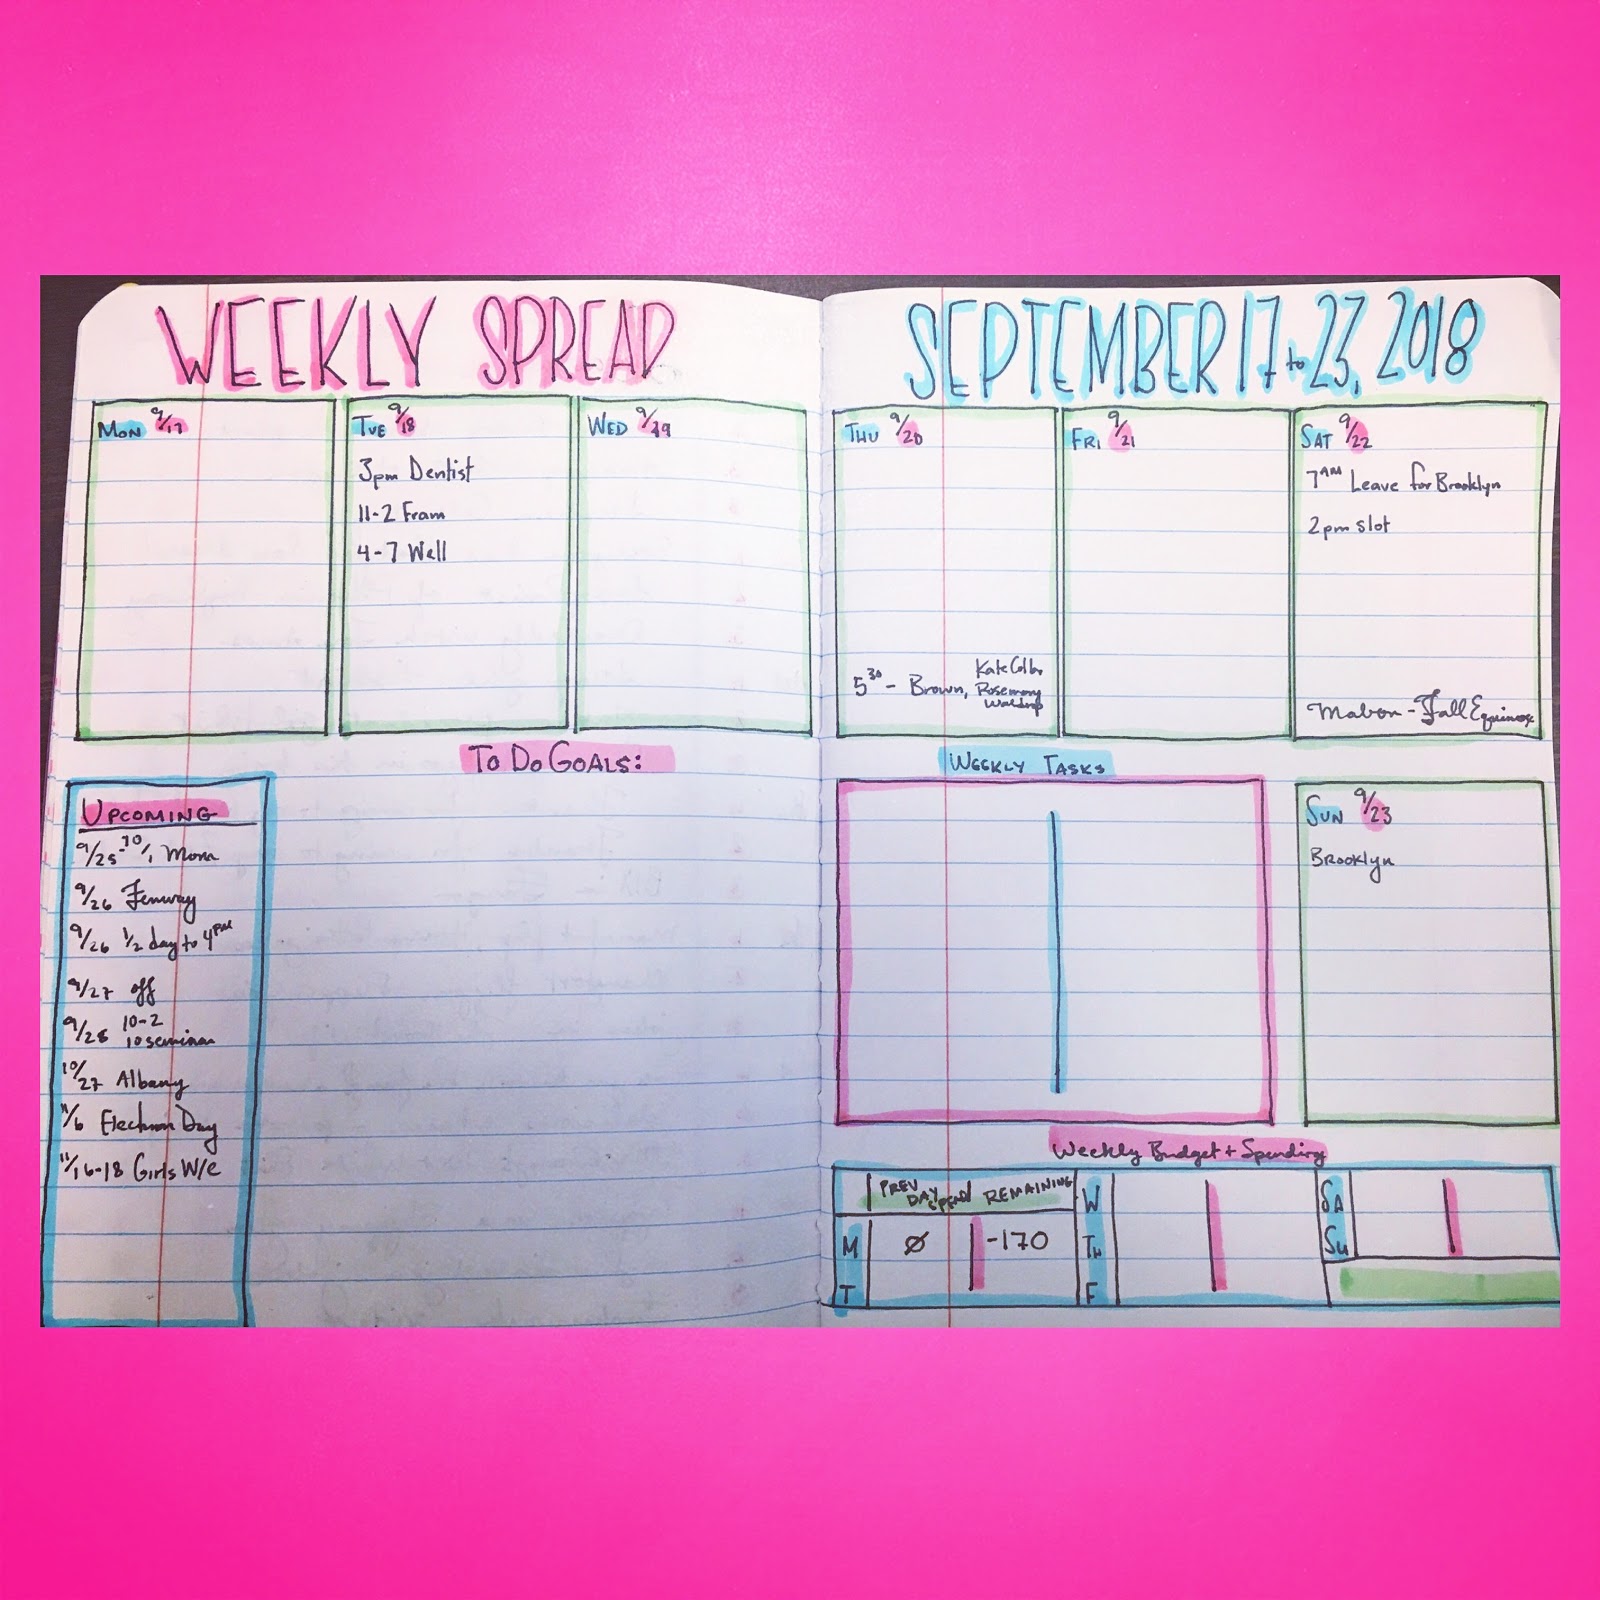 WEEKLY SPREAD
SEPTEMBER 17 to 23, 2018
MON 9/17
TUE 9/18
3pm Dentist
11-2 Fram
4-7 Well
WED 9/19
THU 9/20
5 30 - Brown, Kate Colby
Rosemary
Waldrop
FRI 9/21
SAT 9/22
7AM Leave for Brooklyn
2pm slot
Mabon - Fall Equinox
TO DO GOALS:
UPCOMING
9/25-10/1 Mom
9/26 Fenway
9/26 1/2 day to 4PM
9/27 off
9/28 10-2
10 seminar
10/27 Albany
11/6 Election Day
11/16-18 Girls W/e
WEEKLY TASKS
SUN 9/23
BROOKLYN
Weekly Budget + Spending
PREV DAY SPEND REMAINING
M Ø -170
T
W
TH
F
SA
SU